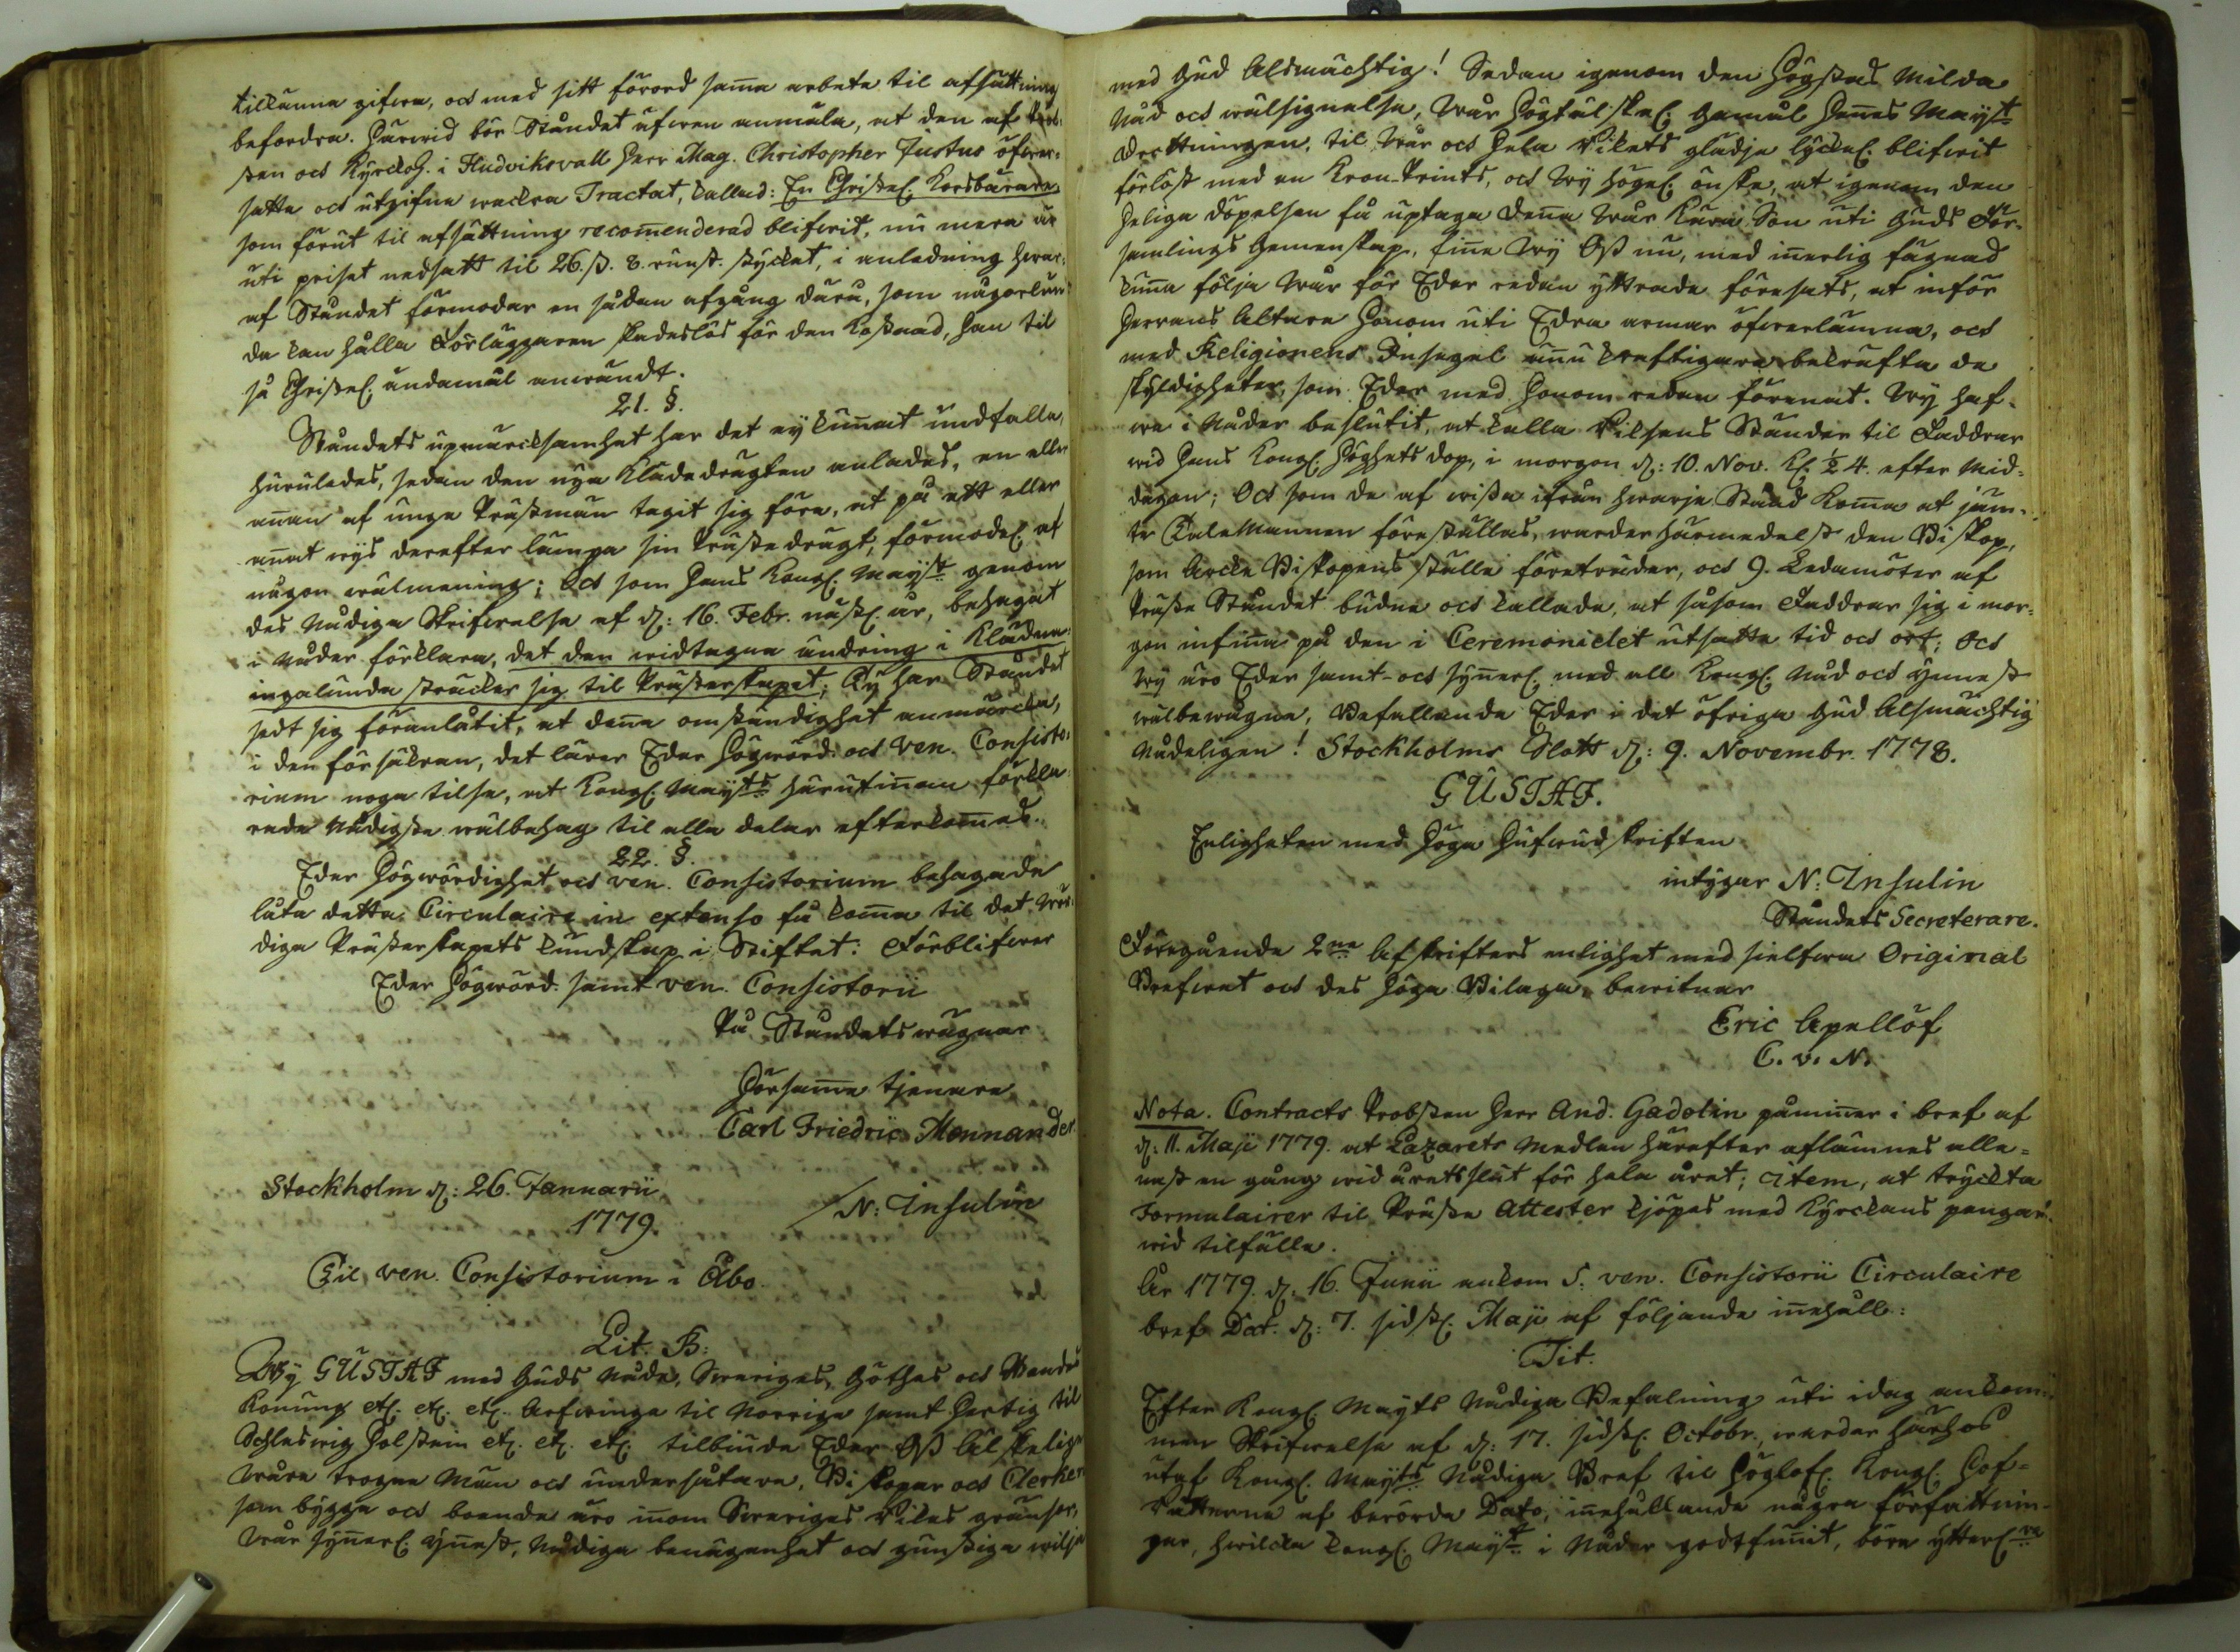 tillkänna gifwa, och med sitt förord sam̅a arbete til afsättning
befordra. Härwid bör Ståndet äfwen anmäla, at den af Prob-
sten och Kyrckoh. i Hudviksvall Herr Mag. Christopher Justus öfwer-
satte och utgifne wackra Tractat, kallad: En Christel. Korsbärare,
som förut til afsättning recom̅enderad blifwit, nu mera är
uti priset nedsatt til 26. s. 8. runst. stycket, i anledning hwar-
af Ståndet förmodar en sådan afgång dära, som någorlun-
da kan hålla Förläggaren skadeslös för den kostnad, han til
så Christel. ändamål anwändt.
21. §.
Ståndets upmärcksamhet har det ey kun̅at undfalla,
huruledes, sedan den nya Klädedrägten anlades, en eller
an̅an af unga Prästmän tagit sig före, at på ett eller
an̅at wys derefter lämpa sin Prästedrägt, förmodel. af
någon wälmening; Och som Hans Kongl. Mayst. genom
des Nådiga Skrifwelse af d: 16. Febr. nästl. år, behagat
i Nåder förklara, det den widtagna ändring i Kläder
ingalunda sträcker sig til Prästerskapet; Ty har Ståndet
sedt sig föranlåtit, at den̅a omständighet anmärcka,
i den försäkran, det lärer Eder Högwörd. och Ven. Consisto-
rium noga tilse, at Kongl. Mayts härutin̅an förkla-
rade Nådigste wälbehag til alla delar efterkom̅es.
22. §.
Eder Högwördighet och ven. Consistorium behagade
låta detta Circulaire in extenso få kom̅a til det Wör-
diga Prästerskapets kundskap i Stiftet: Förblifwer
Eder Högwörd. samt ven. Consistorii
På Ståndets wägnar
Hörsam̅e tjenare
Carl Friedric Mennander
Stockholm d: 26. Januarii
1779.
/N: Insulin
Til ven. Consistorium i Åbo.
Lit. B:
Wy GUSTAF med Guds Nåde, Sweriges, Göthes och Wendes
Konung etc. etc. etc. Arfwinge til Norrige samt Hertig til
Schleswig Holstein etc. etc. etc. tilbiude Eder Oss Älskelige
wåre trogne Män och undersåtare, Biskopar och Clerker
som bygga och boende äro in̅om Sweriges Rikes gränsor,
wår syn̅erl. yn̅est, Nådiga benägenhet och gunstiga wilje
med Gud Alsmächtig! Sedan igenom den Högstas milda
Nåd och wälsignelse, wår Högtälskel. Gemål Hen̅es Mayst
Drottningen, til wår och hela Rikets glädje lyckel. blifwit
förlöst med en Kron-Prints, och wy högel. önske, at igenom den
heliga döpelsen få uptaga den̅a wår Käre Son uti Guds För-
samlings gemenskap, fin̅e wy Oss nu, med in̅erlig fägnad
kun̅a följa wår för Eder redan yttrade föresats, at inför
Herrans Altare Honom uti Edra armar öfwerlämna, och
med Religionens Insegel än̅u kraftigare bekräfta de
skyldigheter, som Eder med Honom redan förenat. Wy haf-
we i Nåder beslutit, at kalla Riksens Stånder til Faddrar
wid Hans Kongl. Höghets dop, i morgon d: 10. Nov. Kl. ½ 4. efter Mid-
dagen; Och som de af wissa ifrån hwarje Stånd kom̅a at jäm-
te Talemannen föreställas, warder härmedelst den Biskop,
som Arcke Biskopens ställe företräder, och 9. Ledamöter af
Präste Ståndet budne och kallade, at såsom Faddrar sig i mor-
gon infin̅a på den i Ceremonielet utsatte tid och ort; Och
wy äro Eder samt- och syn̅erl. med all Kongl. Nåd och ynnest
wälbewågne, Befallande Eder i det öfriga Gud Alsmächtig
Nådeligen! Stockholms Slott d: 9. Novembr. 1778.
GUSTAF.
Enligheten med höga Hufwudskriften
intygar N: Insulin
Ståndets Secreterare.
Föregående 2ne Afskrifters enlighet med sielfwa Original
Brefwet och des höga Bilaga, bewitnar
Eric Apellöf
C. v. N.
Nota. Contracts Probsten Herr And. Gadolin påmin̅er i bref af
d: 11. Maji 1779. at Lazarets Medlen härefter aflämnas alle-
nast en gång wid åretsslut för hela året; item, at tryckta
Formulairer til Präste Attester kjöpas med Kyrckans pengar
wid tilfälle.
År 1779. d: 16. Junii ankom S. ven. Consistorii Circulaire
bref Dat. d: 7. sidstl. Maji af följande in̅ehåll:
Tit.
Efter Kongl. Mayts Nådiga Befalning uti idag ankom-
men Skrifwelse af d: 17. sidstl. Octobr., warder härhos
utaf Kongl. Mayts Nådiga Bref til Höglofl. Kongl. Hof-
Rätterne af berörde Dato, in̅ehållande några författnin-
gar, hwilcka Kongl. Mayst. i Nåder godtfun̅it, böra ytterl.re